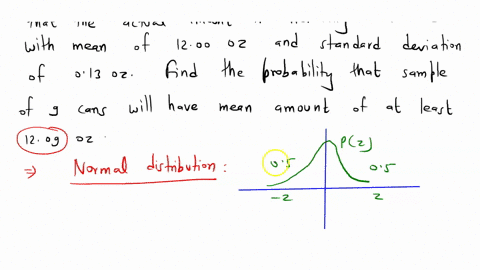 that the actual
with mean of 12.00 oz and standard deviation
of 0.13 oz. Find the probability that sample
of 9 cans will have mean amount of at least
12.09 oz
⇒ Normal distribution :
P(z)
0.5 0.5
-2 2